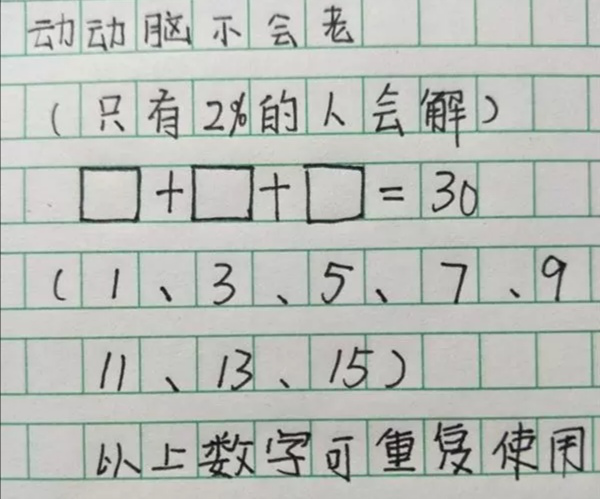 动动脑不会老
（只有2%的人会解）
□+□+□=30
（1、3、5、7、9
11、13、15）
以上数字可重复使用